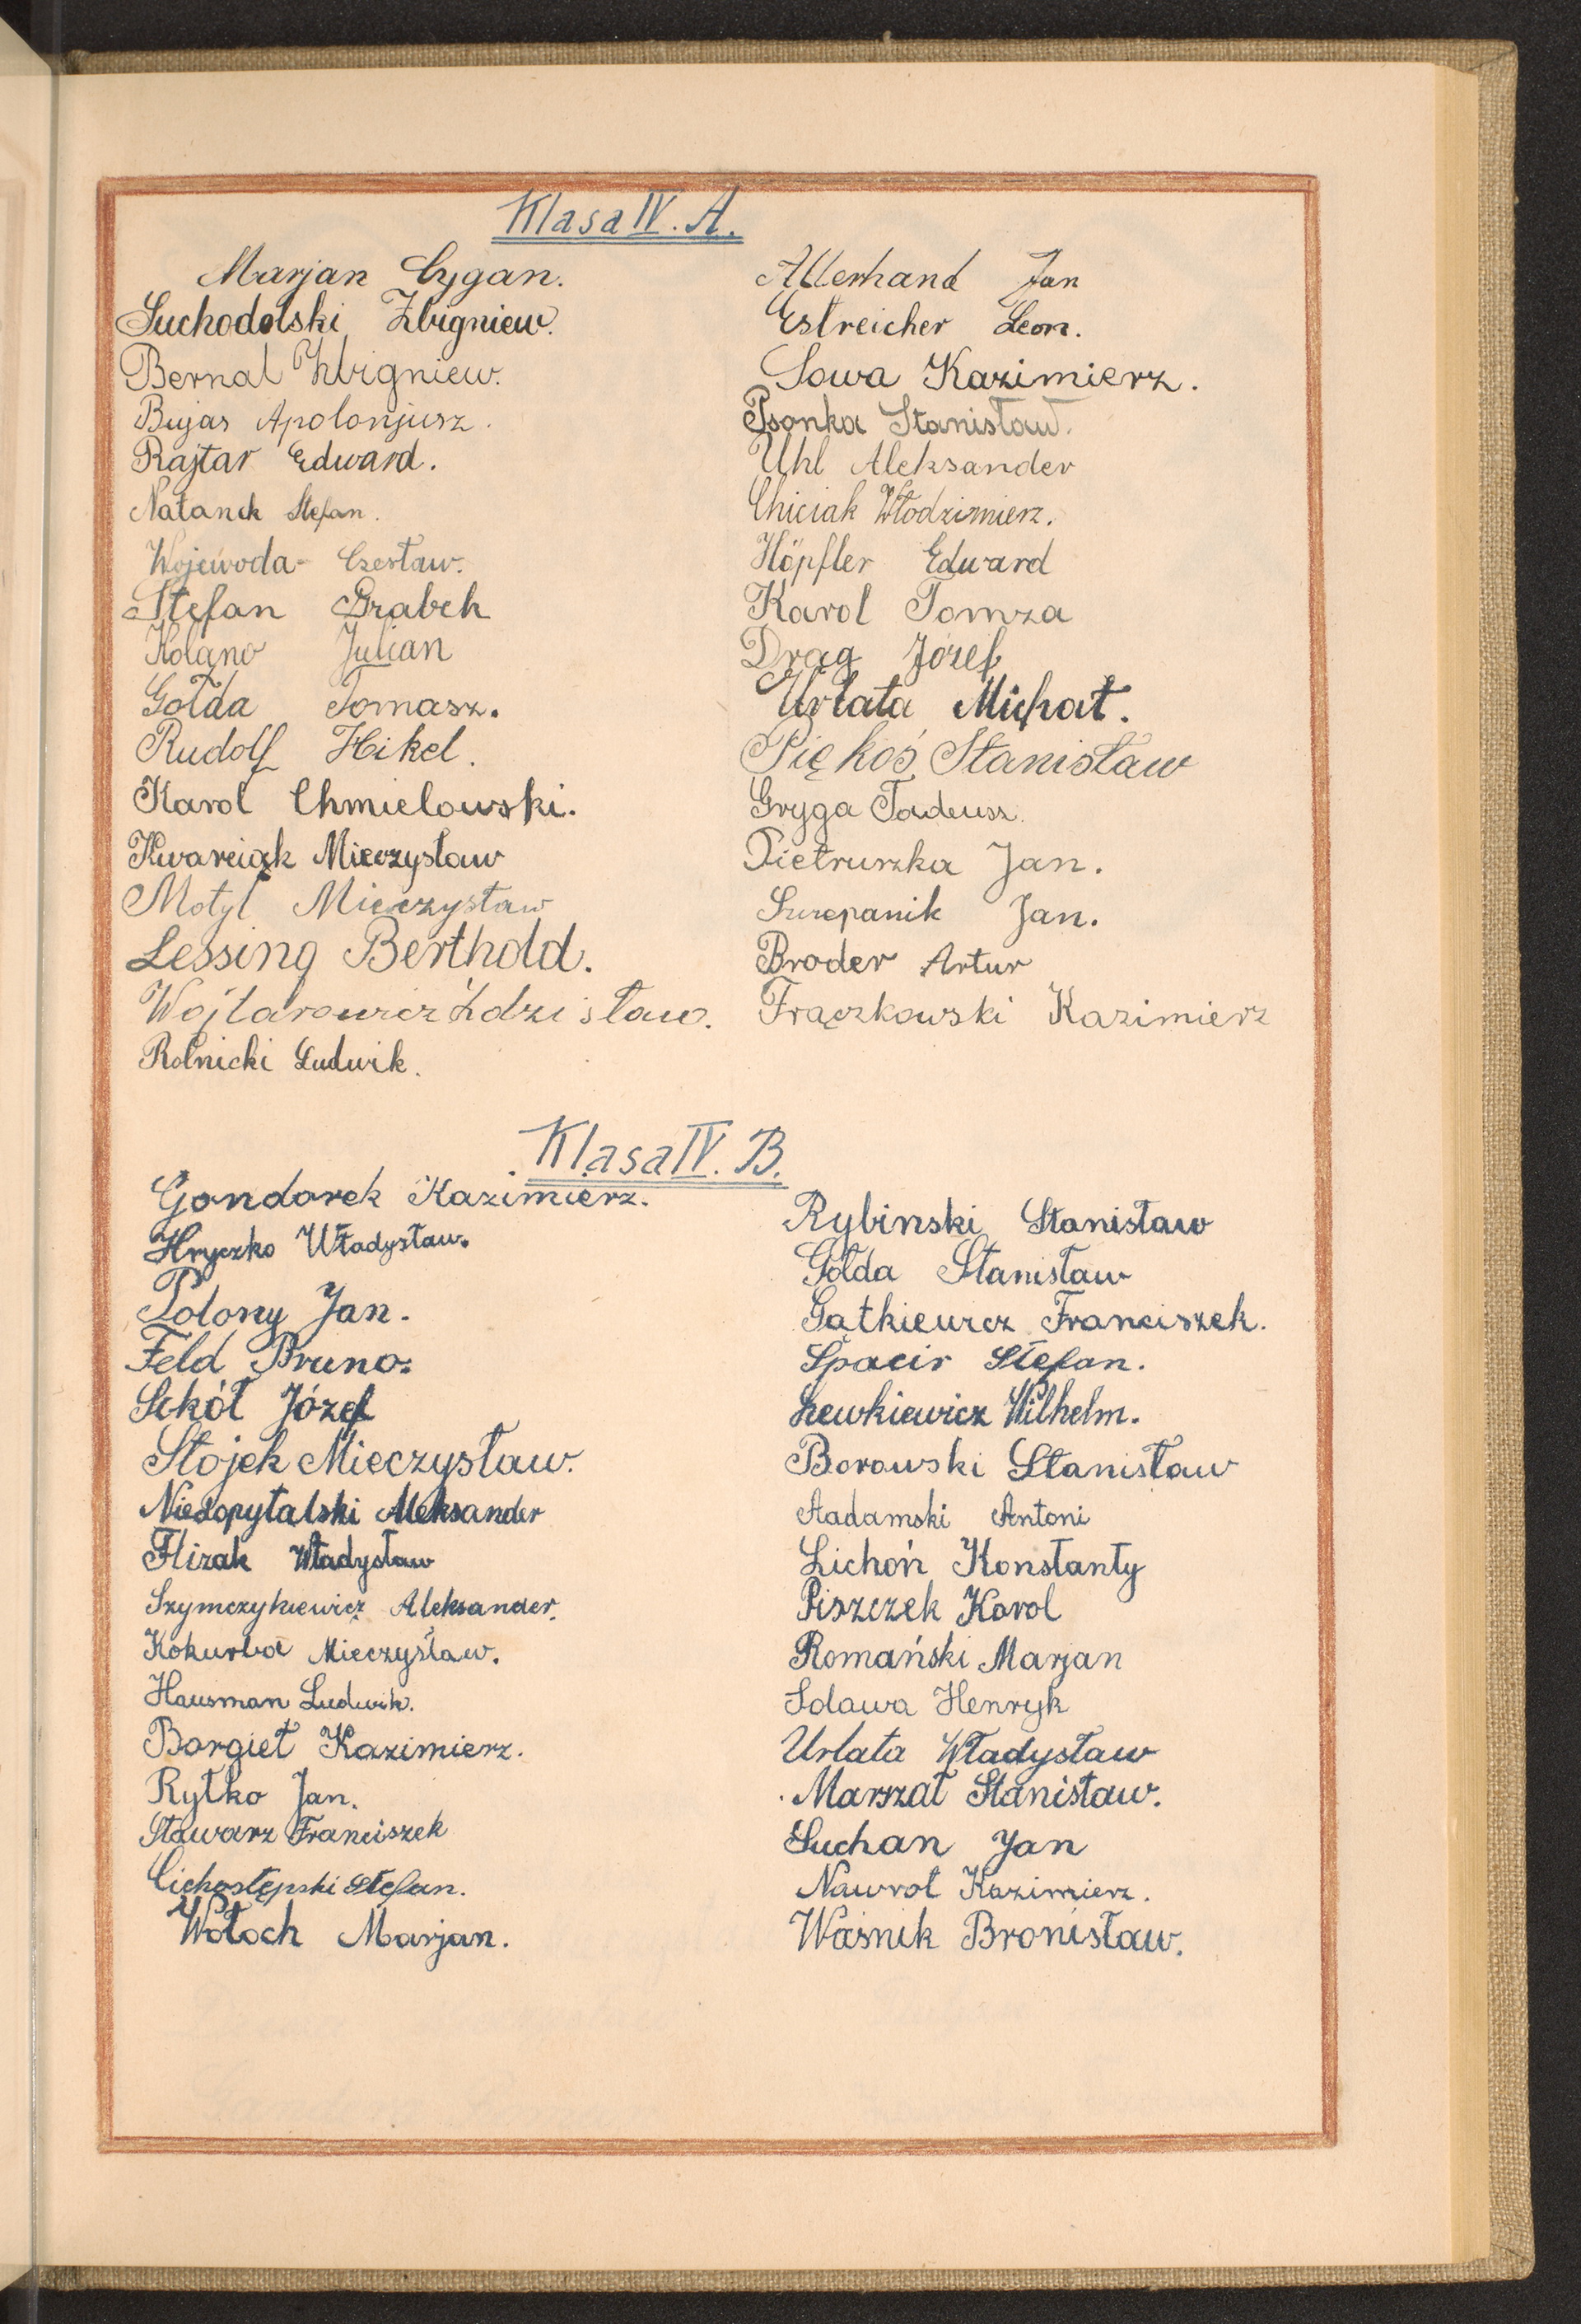 Klasa IV. A.
Marjan Cygan.
Suchodolski Zbigniew.
Bernal Zbigniew.
Bujas Apolonjusz.
Rajtar Edward.
Natanek Stefan.
Wojewoda Czesław.
Stefan Grabek
Kolano Julian
Gołda Tomasz.
Rudolf Hikel.
Karol Chmielowski.
Kwarciak Mieczysław
Motyl Mieczysław
Lessing Berthold.
Wojtarowicz Zdzisław.
Rolnicki Ludwik.
Allerhand Jan
Estreicher Leon.
Sowa Kazimierz.
Psonka Stanisław.
Uhl Aleksander
Chiciak Włodzimierz.
Höpfler Edward
Karol Tomza
Drag Józef
Urłata Michał.
Piękoś Stanisław
Gryga Tadeusz.
Pietruszka Jan.
Szczepanik Jan.
Broder Artur
Frączkowski Kazimierz
Klasa IV. B.
Gondorek Kazimierz.
Hryczko Władysław.
Polony Jan.
Feld Bruno.
Sokół Józef
Stojek Mieczysław.
Niedopytalski Aleksander
Flizak Władysław
Szymczykiewicz Aleksander.
Kokurba Mieczysław.
Hausman Ludwik.
Borgieł Kazimierz.
Rytko Jan.
Stawarz Franciszek
Cichostępski Stefan.
Wołoch Marjan.
Rybinski Stanisław
Gołda Stanisław
Gątkiewicz Franciszek.
Spacir Stefan.
Lewkiewicz Wilhelm.
Borowski Stanisław
Aadamski Antoni
Lichoń Konstanty
Piszczek Karol
Romański Marjan
Sdawa Henryk
Urłata Władysław
Marszał Stanisław.
Suchan Jan
Nawrot Kazimierz.
Waśnik Bronisław.